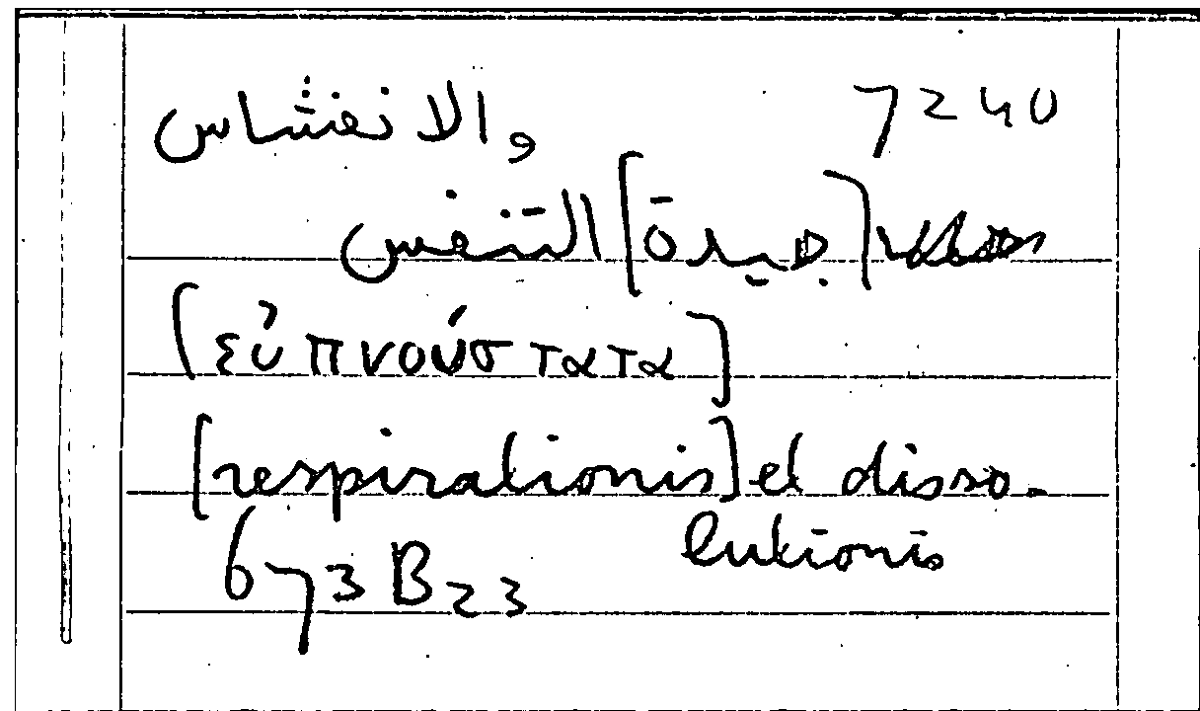 7240 والانفشاس
[جيدة] التنفس
[εὐπνούστατα]
[respirationis] et disso-
lutionis
673B23